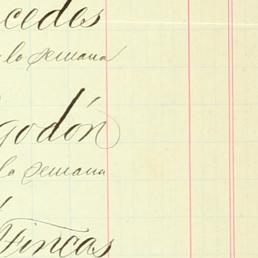 cedes
la semana
godón
la semana
Fincas